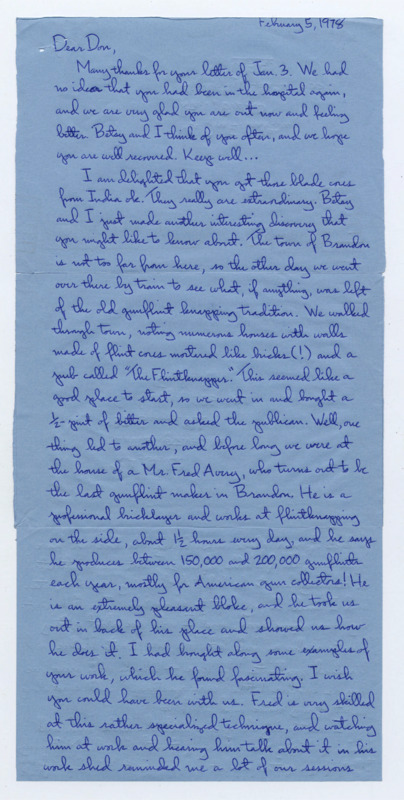 February 5, 1978
Dear Don,
Many thanks for your letter of Jan. 3. We had
no idea that you had been in the hospital again,
and we are very glad you are out now and feeling
better. Betsy and I think of you often, and we hope
you are well recovered. Keep well...
I am delighted that you got those blade cores
from India ok. They really are extraordinary. Betsy
and I just made another interesting discovery that
you might like to know about. The town of Brandon
is not too far from here, so the other day we went
over there by train to see what, if anything, was left
of the old gunflint knapping tradition. We walked
through town, noting numerous houses with walls
made of flint cores mortared like bricks (!) and a
pub called "The Flintknapper." This seemed like a
good place to start, so we went in and bought a
½-pint of bitter and asked the publican. Well, one
thing led to another, and before long we were at
the house of a Mr. Fred Avery, who turns out to be
the last gunflint maker in Brandon. He is a
professional bricklayer and works at flintknapping
on the side, about 1½ hours every day, and he says
he produces between 150,000 and 200,000 gunflints
each year, mostly for American gun collectors! He
is an extremely pleasant bloke, and he took us
out in back of his place and showed us how
he does it. I had bought along some examples of
your work, which he found fascinating. I wish
you could have been with us. Fred is very skilled
at this rather specialized technique, and watching
him at work and hearing him talk about it in his
work shed reminded me a lot of our sessions